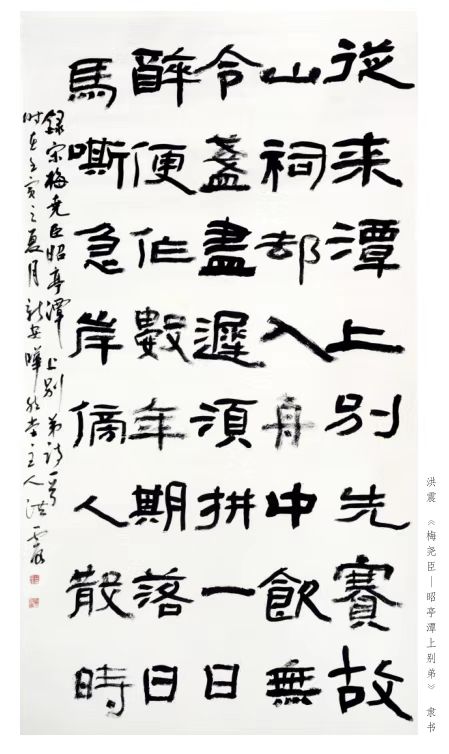 從来潭上别先賽故
山祠却入舟中飲無
令盞盡遲須拼一日
醉便作數年期落日
馬嘶急岸傍人散時
録宋梅尭臣昭亭潭上别弟诗一首
时在壬寅之夏月新安曄堂主人洪震
洪震《梅尧臣—昭亭潭上别弟》 隶书